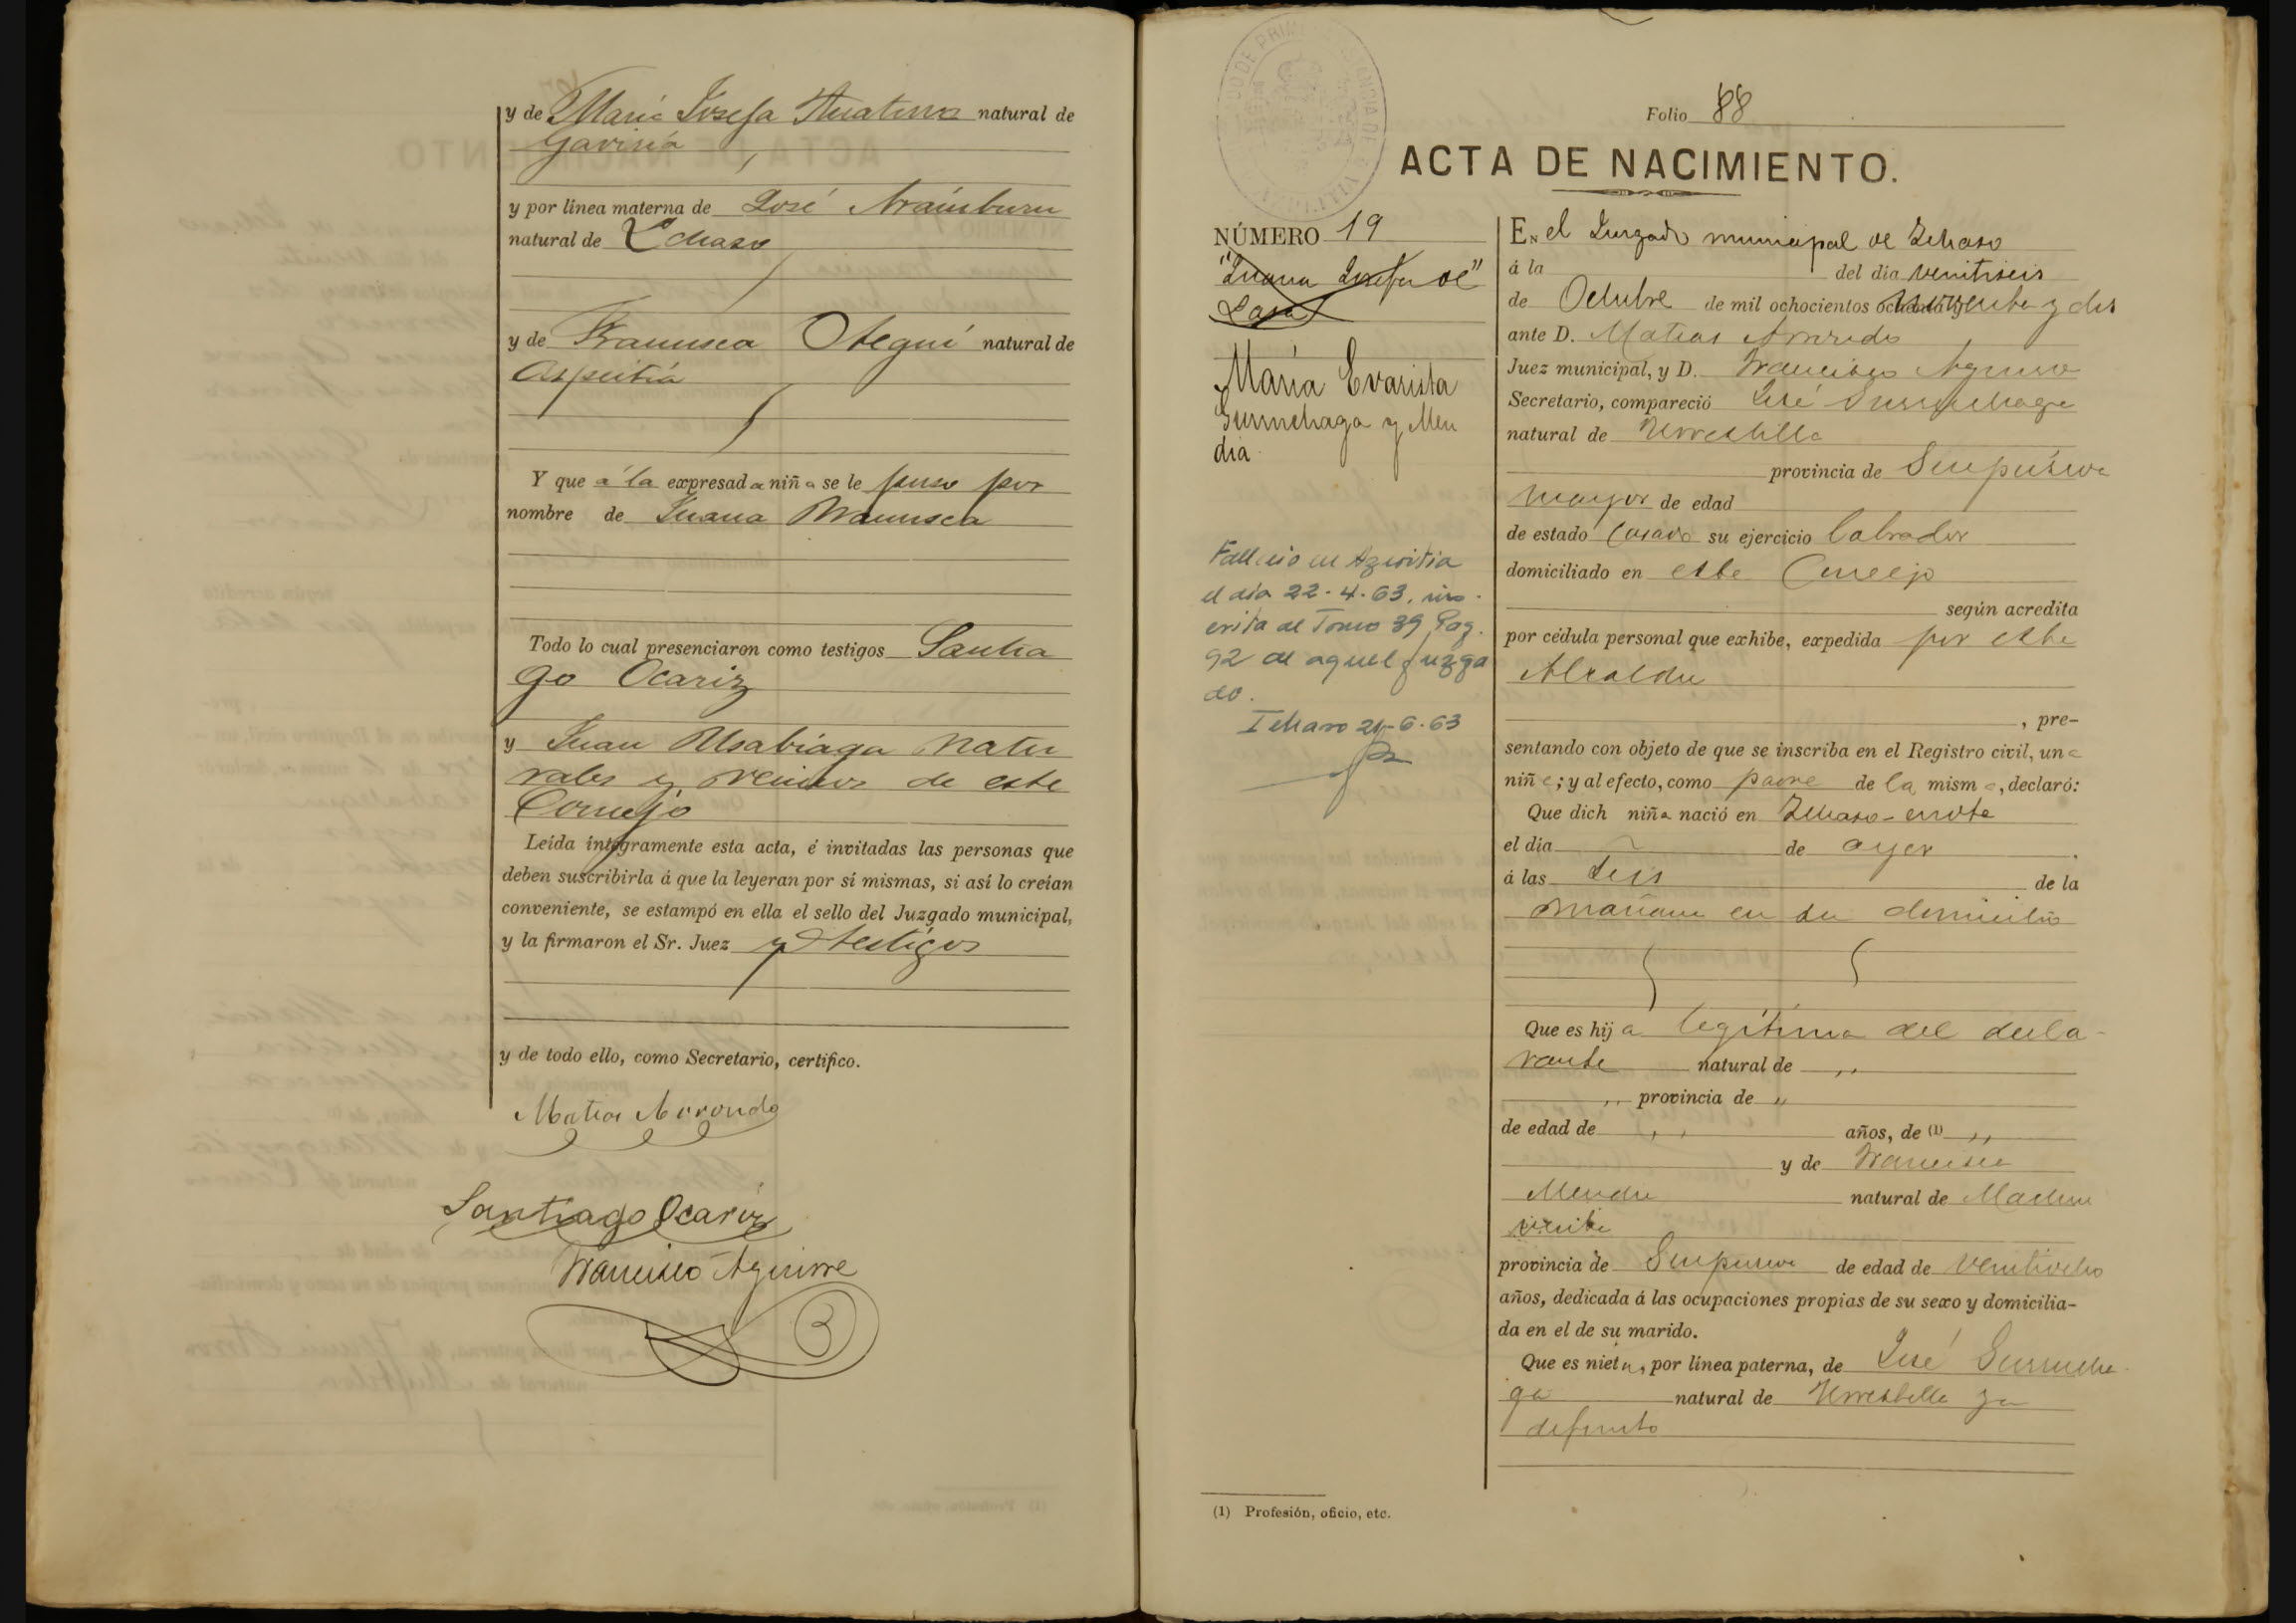 y de María Josefa natural de
Gaviria
y por línea materna de José Aramburu
natural de Ichaso
y de Francisca Otegui natural de
Azpeitia
Y que á la expresada niña se le puso por
nombre de Juana Francisca
Todo lo cual presenciaron como testigos Santia
go Ocariz
y Juan Usabiaga natu
rales y vecinos de este
Concejo
Leída íntegramente esta acta, é invitadas las personas que
deben suscribirla á que la leyeran por sí mismas, si así lo creían
conveniente, se estampó en ella el sello del Juzgado municipal,
y la firmaron el Sr. Juez y testigos
y de todo ello, como Secretario, certifico.
Matias Arrondo
Santiago Ocariz
Francisco Aguirre
Folio 88
ACTA DE NACIMIENTO.
NÚMERO 19
"Juana Josefa de"
María Evarista
Gurruchaga y Men
dia
Falleció en Azpeitia
el día 22-4-63, ins-
crita al Tomo 39 Pag.
92 de aquel Juzga
do.
Ichaso 21-6-63
En el Juzgado municipal de Ichaso
á la del dia veintiseis
de Octubre de mil ochocientos noventa y dos
ante D. Matias Arrondo
Juez municipal, y D. Francisco Aguirre
Secretario, compareció José Gurruchaga
natural de Urrestilla
provincia de Guipúzcoa
mayor de edad
de estado casado su ejercicio labrador
domiciliado en este Concejo
según acredita
por cédula personal que exhibe, expedida por esta
Alcaldia
, pre-
sentando con objeto de que se inscriba en el Registro civil, una
niña; y al efecto, como padre de la misma, declaró:
Que dich niña nació en Ichaso-errota
el día de ayer
á las seis de la
mañana en su domicilio
Que es hija legítima del decla-
rante natural de ,,
,, provincia de ,,
de edad de ,, años, de (1) ,,
y de Francisca
Mendia natural de
provincia de Guipuzcoa de edad de veintiocho
años, dedicada á las ocupaciones propias de su sexo y domicilia-
da en el de su marido.
Que es nieta, por línea paterna, de José Gurrucha-
ga natural de Urrestilla ya
difunto
(1) Profesión, oficio, etc.